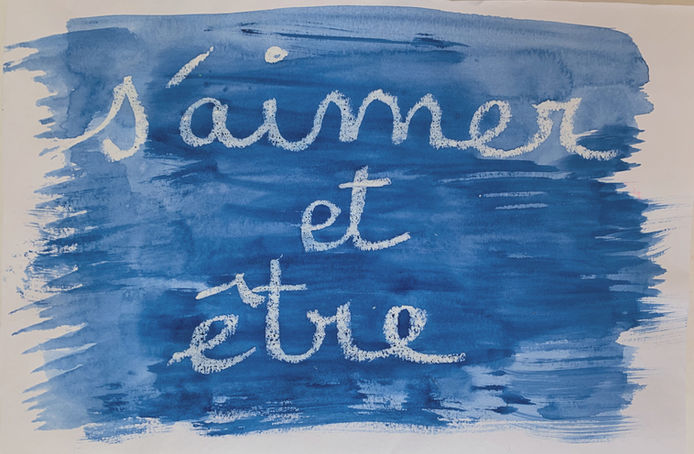 s'aimer
et
être